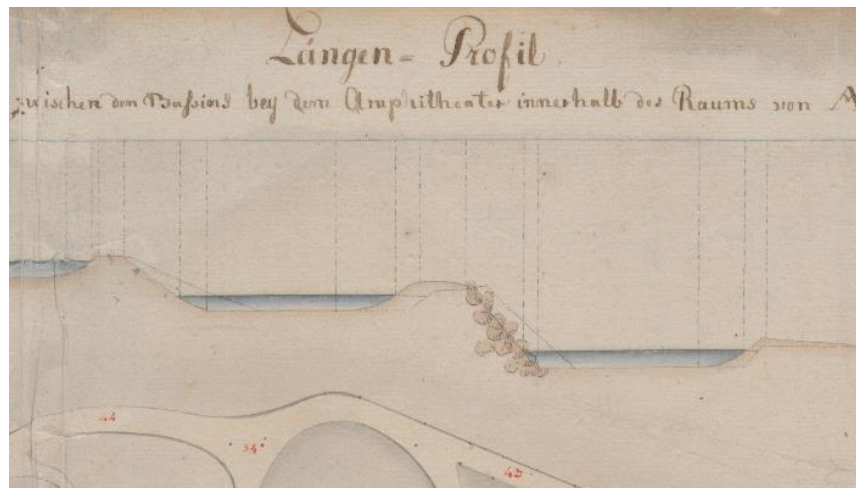 Längen=Profil
zwischen den Bassins bey dem Amphitheater innerhalb des Raums von A
44
54
43